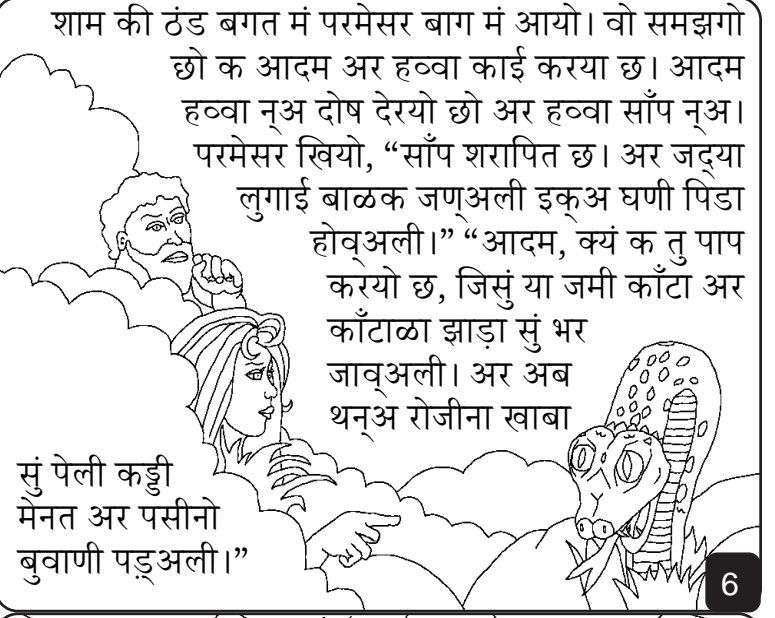 शाम की ठंड बगत मं परमेसर बाग मं आयो। वो समझगो
छो क आदम अर हव्वा काई करया छ। आदम
हव्वा न्अ दोष देरयो छो अर हव्वा साँप न्अ।
परमेसर खियो, “साँप शरापित छ। अर जद्या
लुगाई बाळक जण्अली इक्अ घणी पिडा
होव्अली।” “आदम, क्यं क तु पाप
करयो छ, जिसुं या जमी काँटा अर
काँटाळा झाड़ा सुं भर
जाव्अली। अर अब
थन्अ रोजीना खाबा
सुं पेली कड्डी
मेनत अर पसीनो
बुवाणी पड़्अली।”
6